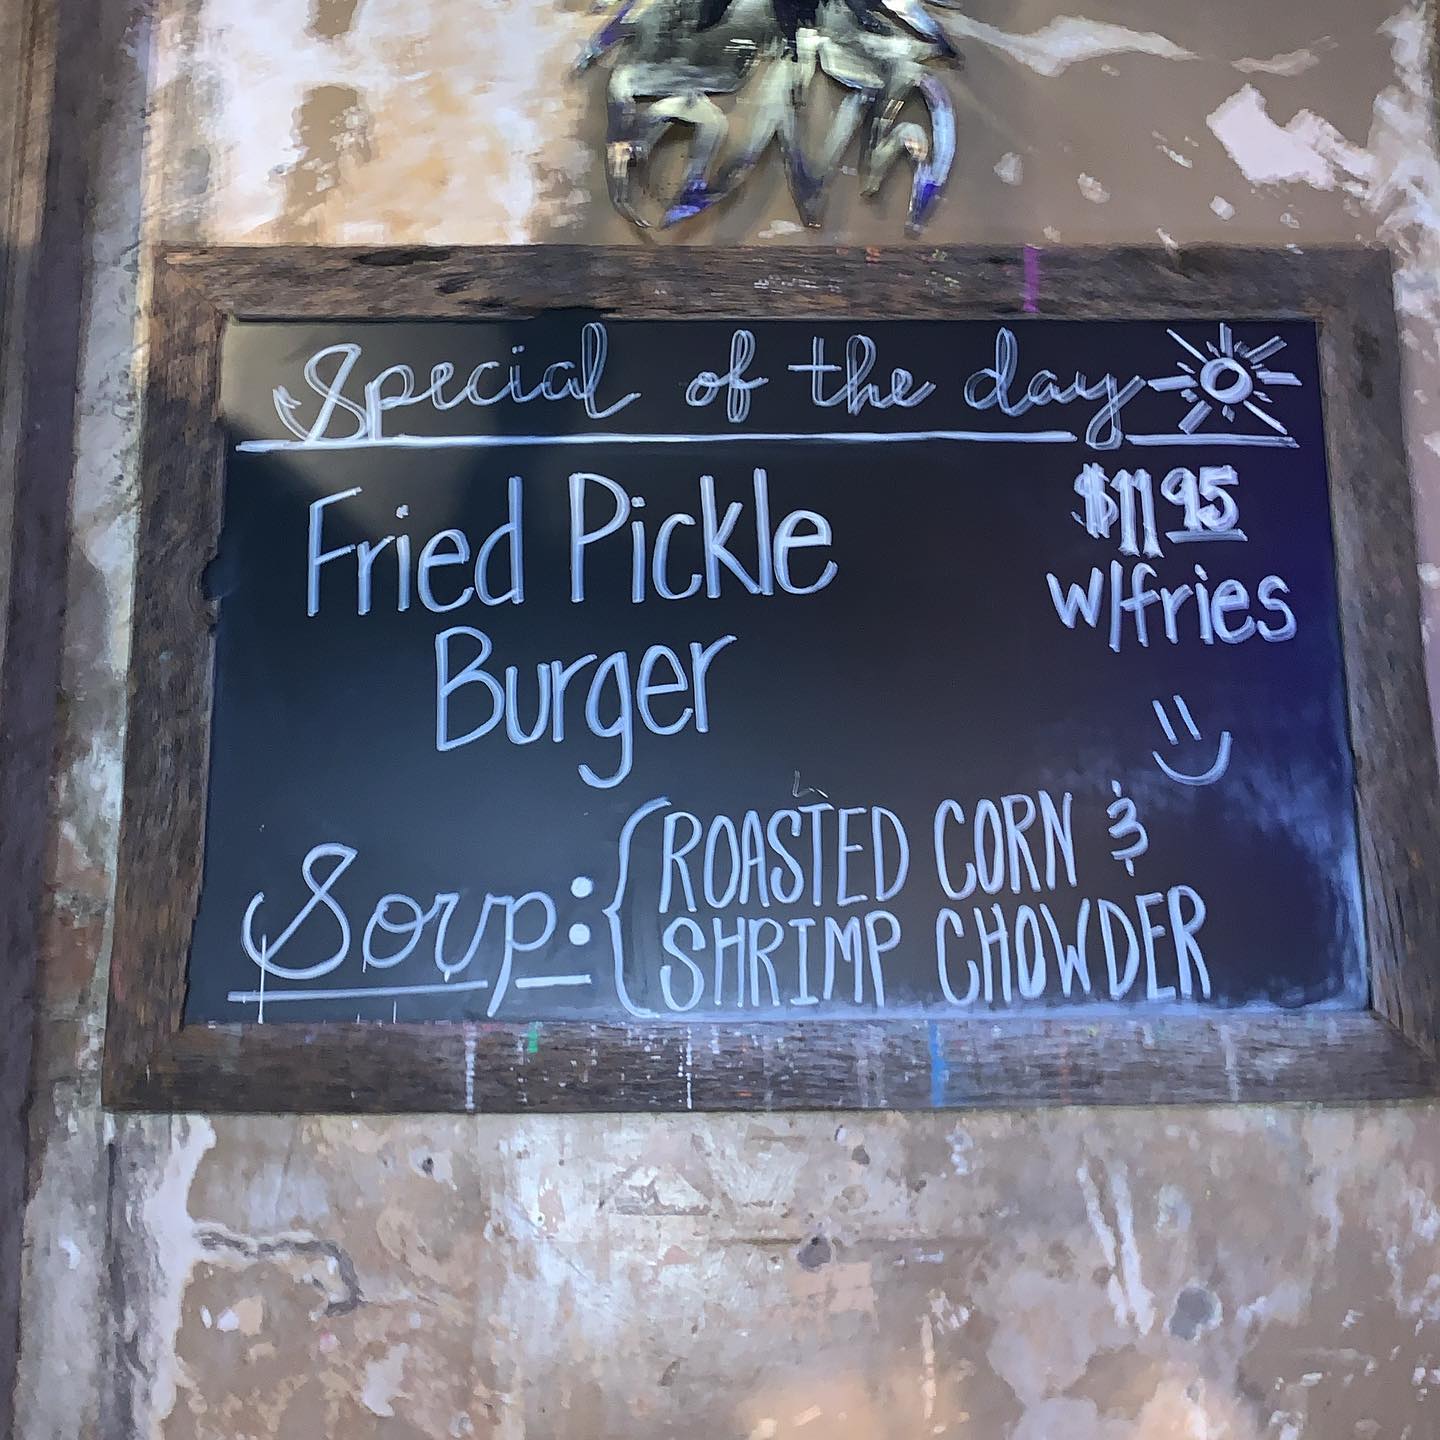 Special of the day
Fried Pickle $11.95
Burger w/fries
Soup: ROASTED CORN &
SHRIMP CHOWDER